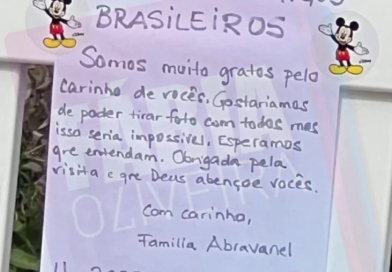 BRASILEIROS
Somos muito gratos pelo
carinho de vocês. Gostariamos
de poder tirar foto com todos mas
isso seria impossível. Esperamos
que entendam. Obrigada pela
visita e que Deus abençoe vocês.
Com carinho,
Familia Abravanel